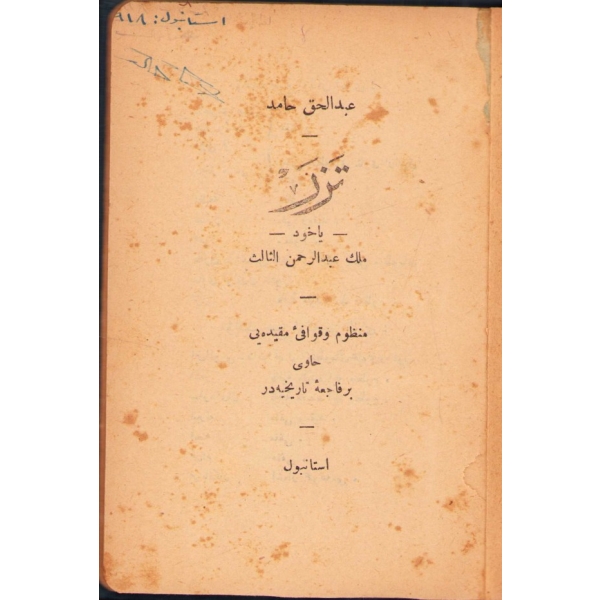 استانبول: ٩١٨
عبدالحق حامد
تَزَرْ
— ياخود —
ملك عبدالرحمن الثالث
منظوم وقوافئ مقيده‌يى
حاوى
برفاجعهٔ تاريخيه‌در
استانبول